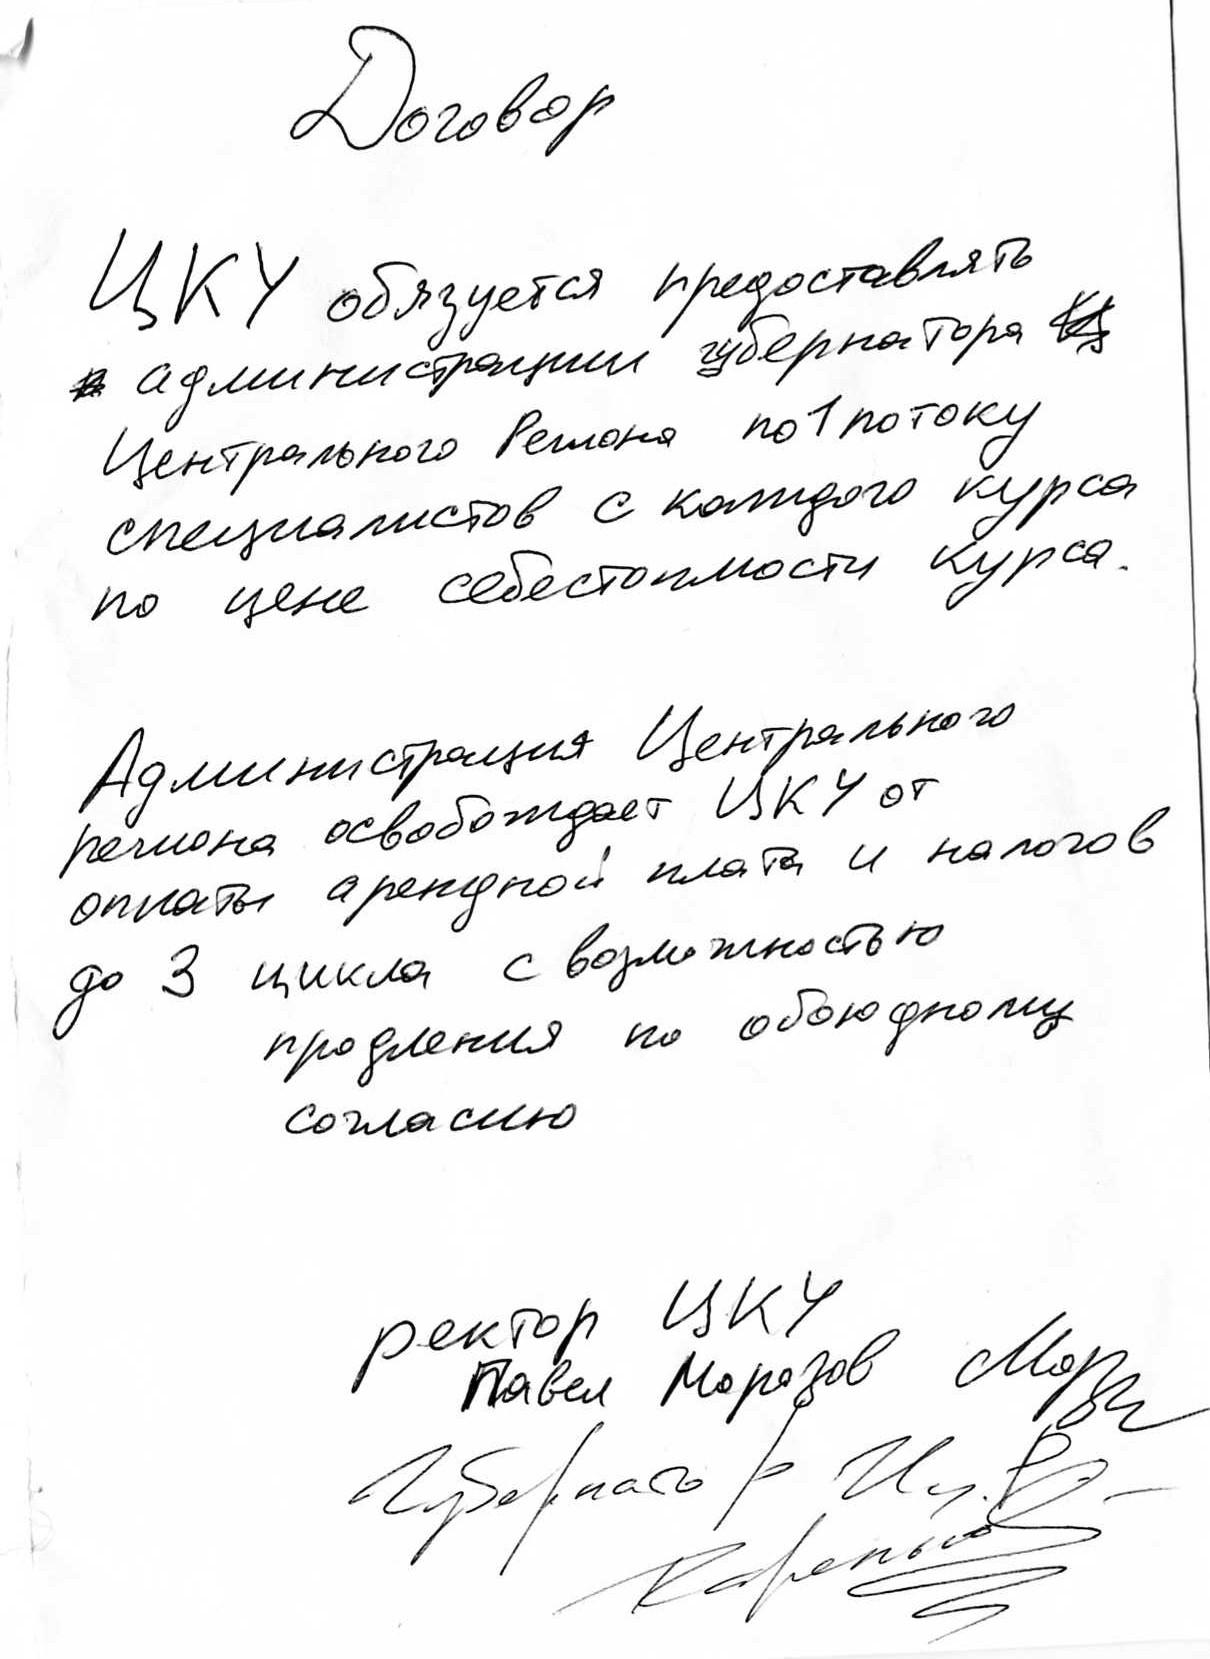 Договор
ЦКУ обязуется предоставлять
администрации губернатора
Центрального Региона по 1 потоку
специалистов с каждого курса
по цене себестоимости курса.
Администрация Центрального
региона освобождает ЦКУ от
оплаты арендной плата и налогов
до 3 цикла с возможностью
продления по обоюдному
согласию
ректор ЦКУ
Павел Морозов
Губернатор